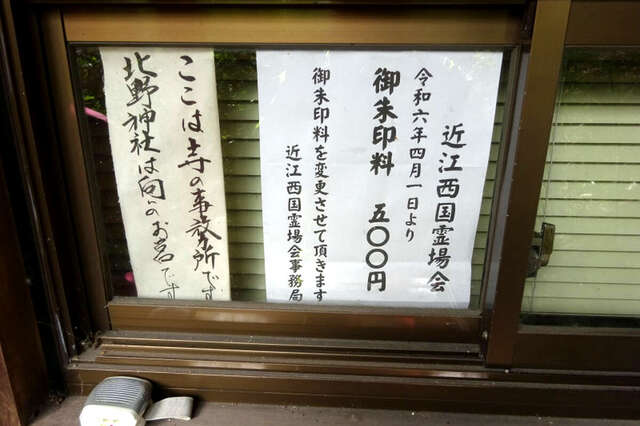 近江西国霊場会
令和六年四月一日より
御朱印料 五〇〇円
御朱印料を変更させて頂きます
近江西国霊場会事務局
ここは寺の事務所です
北野神社は向いのお宮です